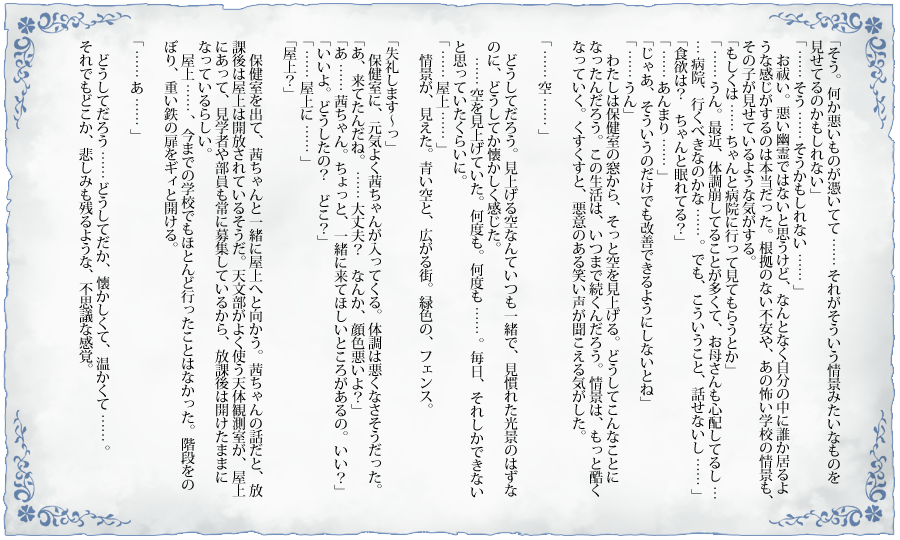 「そう。何か悪いものが憑いてて……それがそういう情景みたいなものを
見せてるのかもしれない」
「……そう……そうかもしれない……」
　お祓い。悪い幽霊ではないと思うけど、なんとなく自分の中に誰か居るよ
うな感じがするのは本当だった。根拠のない不安や、あの怖い学校の情景も、
その子が見せているような気がする。
「もしくは……ちゃんと病院に行って見てもらうとか」
「……うん。最近、体調崩してることが多くて、お母さんも心配してるし…
…病院、行くべきなのかな……。でも、こういうこと、話せないし……」
「食欲は？　ちゃんと眠れてる？」
「……あんまり……」
「じゃあ、そういうのだけでも改善できるようにしないとね」
「……うん」
　わたしは保健室の窓から、そっと空を見上げる。どうしてこんなことに
なったんだろう。この生活は、いつまで続くんだろう。情景は、もっと酷く
なっていく。くすくすと、悪意のある笑い声が聞こえる気がした。
「………空……」
　どうしてだろう。見上げる空なんていつも一緒で、見慣れた光景のはずな
のに、どうしてか懐かしく感じた。
……空を見上げていた。何度も。何度も……。毎日、それしかできない
と思っていたくらいに。
「……屋上……」
　情景が、見えた。青い空と、広がる街。緑色の、フェンス。
「失礼します〜っ」
　保健室に、元気よく茜ちゃんが入ってくる。体調は悪くなさそうだった。
「あ、来てたんだね。……大丈夫？　なんか、顔色悪いよ？」
「あ……茜ちゃん。ちょっと、一緒に来てほしいところがあるの。いい？」
「いいよ。どうしたの？　どこ？」
「……屋上に……」
「屋上？」
　保健室を出て、茜ちゃんと一緒に屋上へと向かう。茜ちゃんの話だと、放
課後は屋上は開放されているそうだ。天文部がよく使う天体観測室が、屋上
にあって、見学者や部員も常に募集しているから、放課後は開けたままに
なっているらしい。
　屋上……、今までの学校でもほとんど行ったことはなかった。階段をの
ぼり、重い鉄の扉をギィと開ける。
「……あ……」
　どうしてだろう……どうしてだか、懐かしくて、温かくて……。
それでもどこか、悲しみも残るような、不思議な感覚。